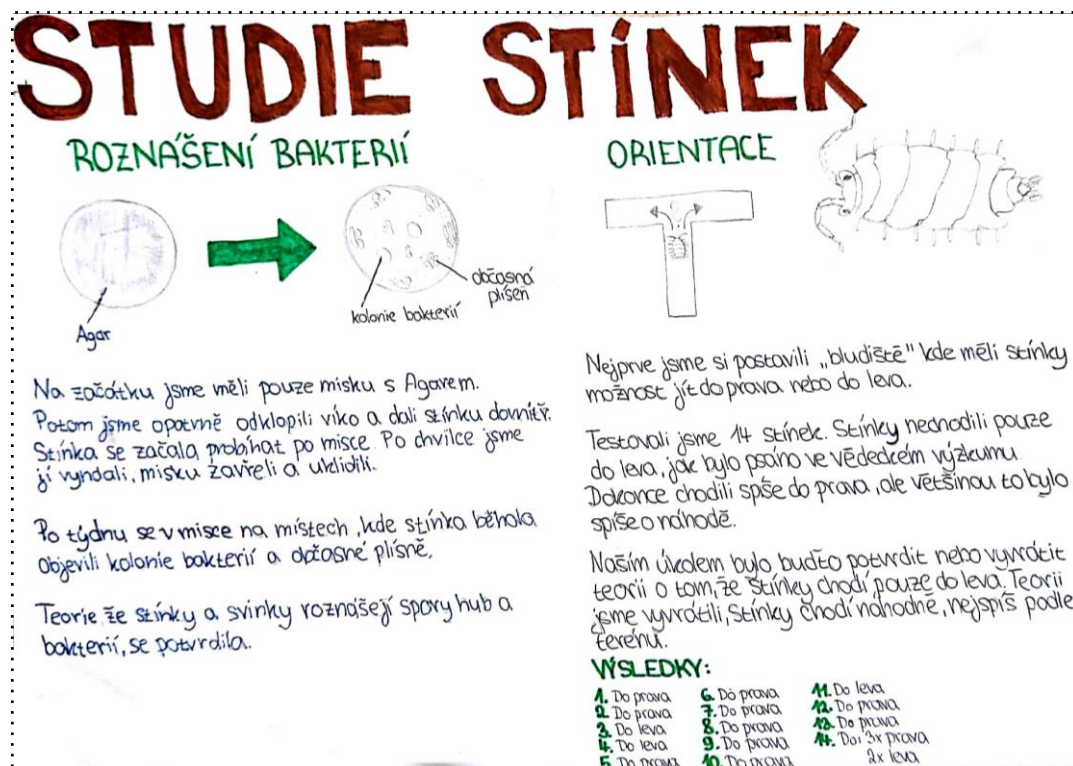 STUDIE STÍNEK
ROZNÁŠENÍ BAKTERIÍ
Agar
kolonie bakterií
občasná
plíseň
Na začátku jsme měli pouze misku s Agarem.
Potom jsme opatrně odklopili víko a dali stínku dovnitř.
Stínka se začala probíhat po misce. Po chvilce jsme
jí vyndali, misku zavřeli a uklidili.
Po týdnu se v misce na místech, kde stínka běhala
objevili kolonie bakterií a občasné plísně.
Teorie že stínky a svinky roznášejí spory hub a
bakterií, se potvrdila.
ORIENTACE
Nejprve jsme si postavili „bludiště" kde měli stínky
možnost jít do prava nebo do leva.
Testovali jsme 14 stínek. Stínky nechodili pouze
do leva, jak bylo psáno ve vědeckém výzkumu.
Dokonce chodili spíše do prava, ale většinou to bylo
spíše o náhodě.
Naším úkolem bylo buďto potvrdit nebo vyvrátit
teorii o tom, že stínky chodí pouze do leva. Teorii
jsme vyvrátili, stínky chodí náhodně, nejspíš podle
terénu.
VÝSLEDKY:
1. Do prava
2. Do prava
3. Do leva
4. Do leva
5. Do prava
6. Do prava
7. Do prava
8. Do prava
9. Do prava
10. Do prava
11. Do leva
12. Do prava
13. Do prava
14. Do: 3x prava
2x leva